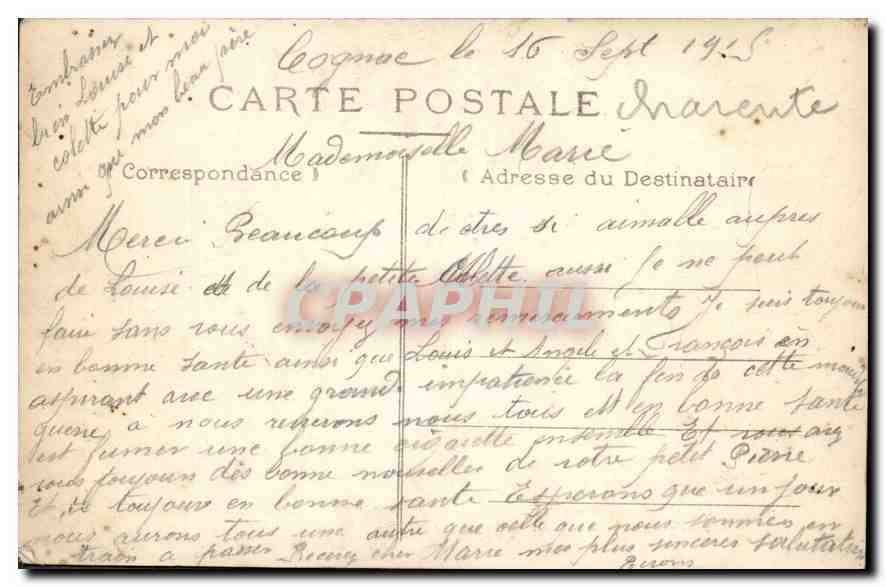 Cognac le 16 Sept 1915
Embrassez
bien Louise et
colette pour moi
ainsi que mon beau père
CARTE POSTALE Charente
Mademoiselle Marie
Correspondance Adresse du Destinataire
Merci Beaucoup de etres si aimable aupres
de Louise et de la petite Colette aussi Je ne peut
faire sans vous envoyez mes remerciements Je suis toujours
en bonne sante ainsi que Louis et Angele et François en
aspirant avec une grande impatience la fin de cette
guerre a nous revoirons nous tous et en bonne sante
et fumer une bonne cigarette ensemble Et vous avez
vous toujours dès bonne nouvelles de votre petit Pierre
Et, toujours en bonne sante Esperons que un jour
nous aurons tous une autre que celle que nous sommes en
train a passer Recevez cher Marie mes plus sinceres Salutations
CPAPHIL